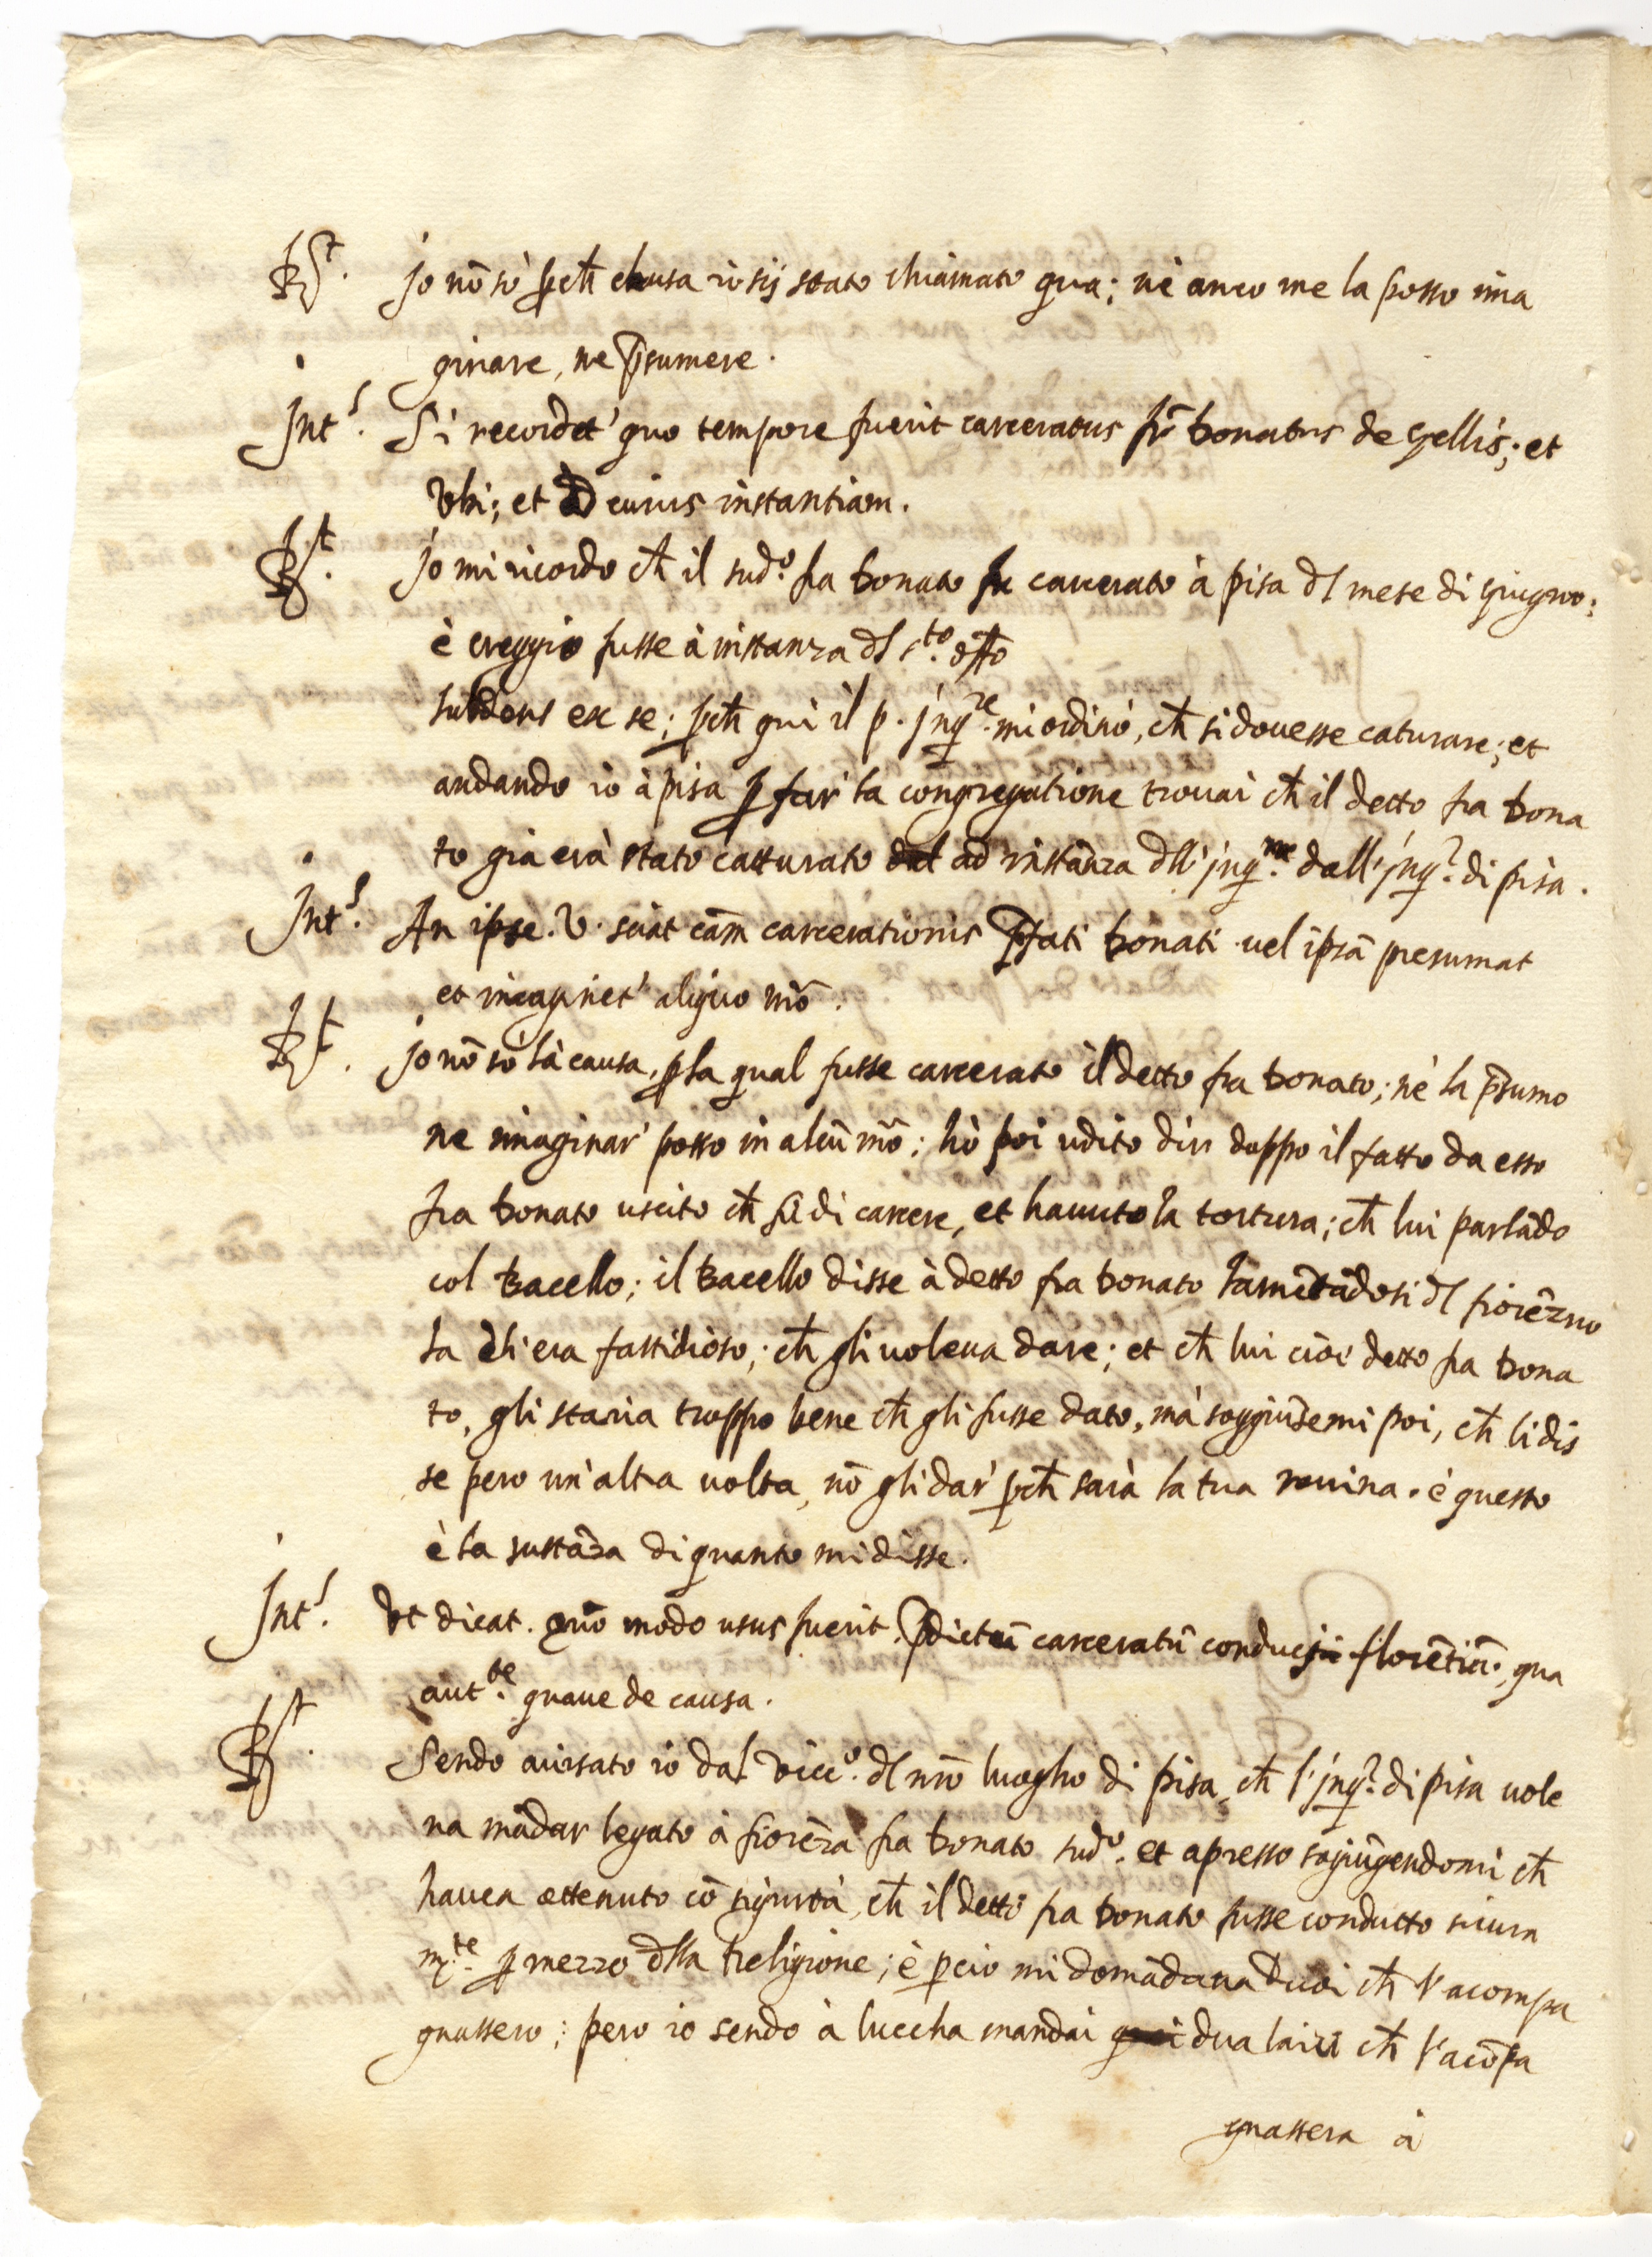 R.t Io nõ sò ꝑch̃ chausa io sij stato chiamato qua; nè anco me la posso ima
ginare, ne p̃sumere.
Int.s Si recordet' quo tempore fuerit carceratus fr̃ Donatus de gellis; et
Vbi; et AD cuius instantiam.
R.t Io mi ricordo ch̃ il sud.o fra Donato fu carcerato à pisa dl mese di Giugno;
è creggio fusse à instanza dl s.to offo
subdens ex se; ꝑch̃ qui il p. jnq.re mi ordinò, ch̃ si douesse caturare; et
andando io à pisa ꝑ far la congregatione trouai ch̃ il detto fra Dona
to già erà stato catturato ad instãnza dll' jnq.ne dall' jnq.r di pisa.
Int.s An ipse. V. sciat cãm carcerationis p̃fati Donati uel ip̃sã presumat
et imaginet' aliquo mõ.
R.t Io nõ sò là causa, ꝑ la qual fusse carcerato il detto fra Donato; nè la p̃sumo
ne imaginar' posso in alcũ mõ; hò poi udito dir doppo il fatto da esso
fra Donato uscito ch̃ fù di carcere, et hauuto la tortura; ch̃ lui parlãdo
col Bacello; il Bacello disse à detto fra Donato lamẽtãdosi dl fiorẽzuo
la ch̃ era fastidioso; ch̃ gli uoleua dare; et ch̃ lui cioè detto fra Dona
to, gli staria troppo bene ch̃ gli fusse dato, mà soggiũsemi poi, ch̃ li dis
se pero un' altra uolta, nõ gli dar' ꝑch̃ sarà la tua rouina. è questo
è la sustãza di quanto mi disse.
Int.s Vt dicat. quõ modo usus fuerit. p̃dictũ carceratũ conduci florẽtiã. qua
aut.te quaue de causa.
R.t Sendo auisato io dal Vicc.o dl nrõ luogho di pisa, ch̃ l' jnq.r di pisa uole
ua mãdar legato à fiorẽza fra Donato sud.o et apresso sogiũgendomi ch̃
hauea ottenuto cõ sigurtà, ch̃ il detto fra Donato fusse condutto sicura
m.te ꝑ mezzo dlla Religione; è ꝑciò mi domãdaua duoi ch̃ l' acompa
gnassero; pero io sendo à luccha mandai dua laici ch̃ l' acõpa
gnassera à